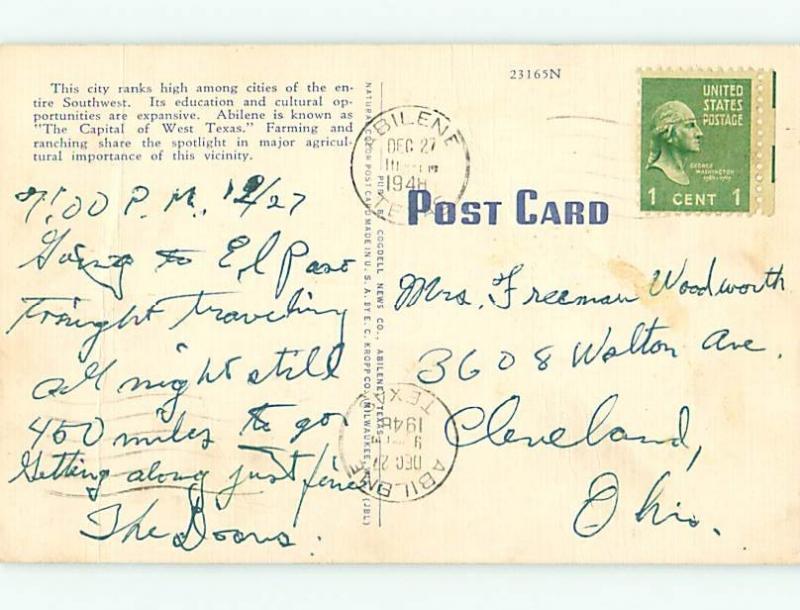 23165N
This city ranks high among cities of the en-
tire Southwest. Its education and cultural op-
portunities are expansive. Abilene is known as
"The Capital of West Texas." Farming and
ranching share the spotlight in major agricul-
tural importance of this vicinity.
7:00 P.M., 12/27
Going to El Paso
Tonight traveling
all night still
450 miles to go
Getting along just fine
The Doons.
NATURAL COLOR POST CARD MADE IN U. S. A. BY E. C. KROPP CO., MILWAUKEE, (JBL)
PUB. BY COGDELL NEWS CO., ABILENE, TEXAS
ABILENE
DEC 27
1948
TEXAS
POST CARD
UNITED
STATES
POSTAGE
GEORGE
WASHINGTON
1 CENT 1
Mrs. Freeman Woodworth
3608 Walton Ave.
Cleveland,
Ohio.
ABILENE
DEC 27
9
1948
TEXAS